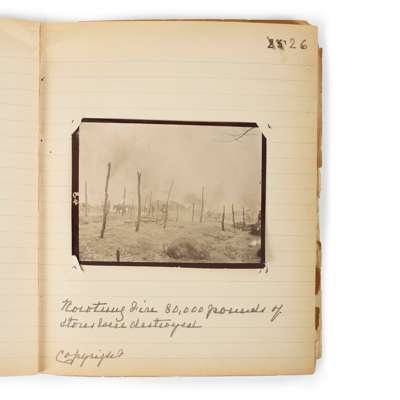 26
Fire 80,000 pounds of
stores were destroyed
Copyright